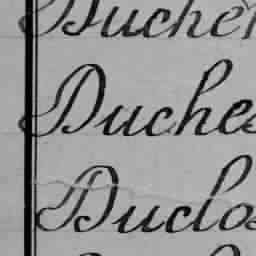 Ducher
Duches
Duclos